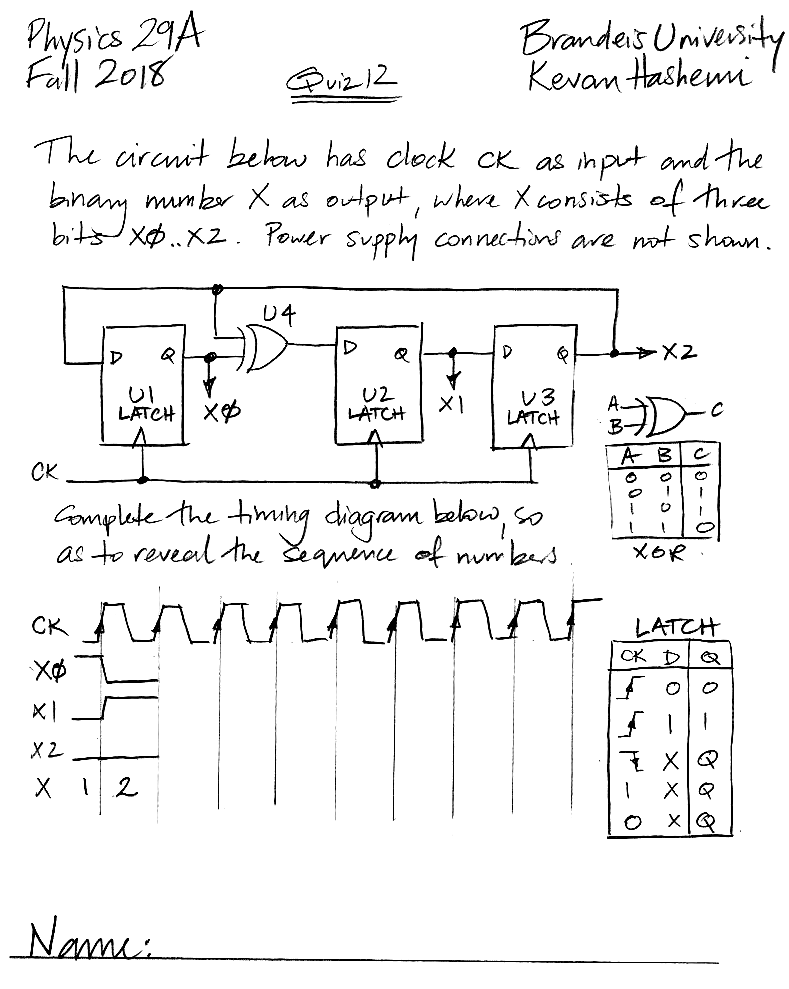 Physics 29A
Fall 2018
Quiz 12
Brandeis University
Kevan Hashemi
The circuit below has clock CK as input and the
binary number X as output, where X consists of three
bits X0..X2. Power supply connections are not shown.
U4
D Q
U1
LATCH
X0
D Q
U2
LATCH
X1
D Q
U3
LATCH
X2
CK
A
B
C
A B C
0 0 0
0 1 1
1 0 1
1 1 0
XOR
Complete the timing diagram below, so
as to reveal the sequence of numbers
CK
X0
X1
X2
X 1 2
LATCH
CK D Q
0 0
1 1
X Q
1 X Q
0 X Q
Name: